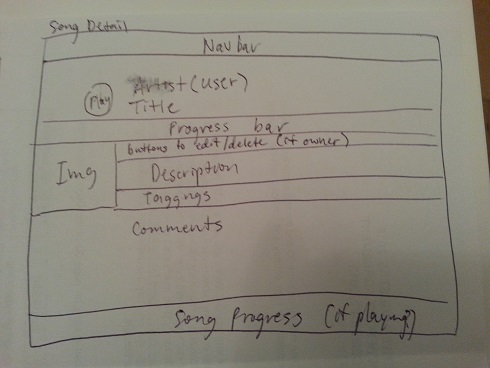 Song Detail
Navbar
Play
Artist (user)
Title
Progress bar
buttons to edit/delete (if owner)
Img
Description
Taggngs
Comments
Song Progress (if playing)